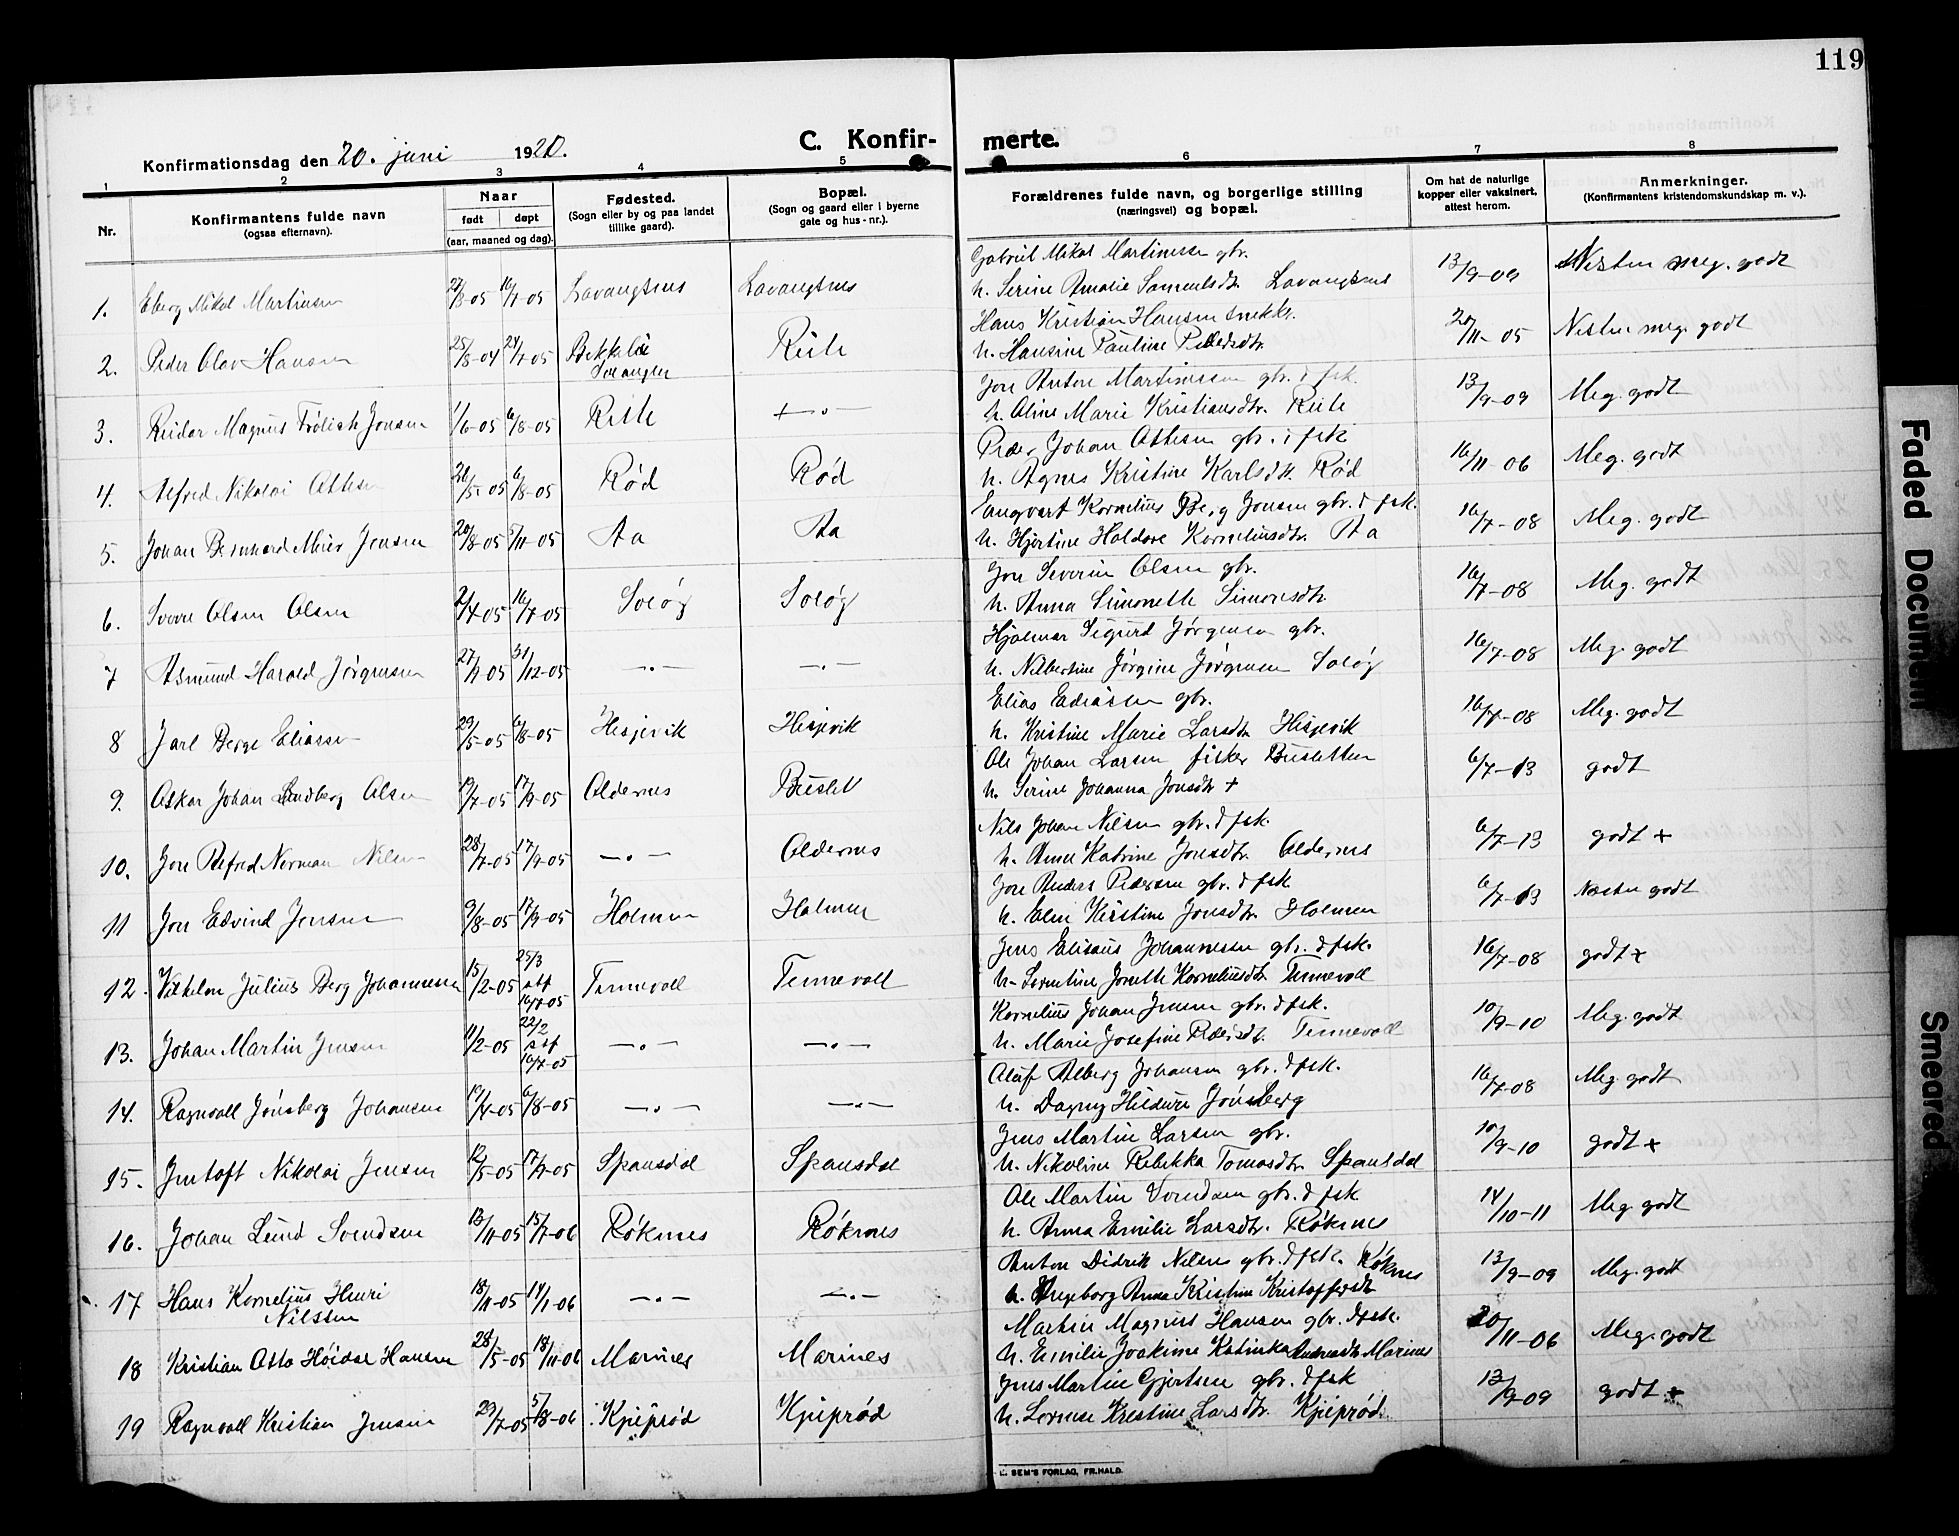 119
Konfirmationsdag den 20. juni 1920.
C. Konfir-
merte.
1 2 3 4 5 6 7 8
Nr.
Konfirmantens fulde navn
(ogsaa efternavn).
Naar
født døpt
(aar, maaned og dag).
Fødested.
(Sogn eller by og paa landet
tillike gaard).
Bopæl.
(Sogn og gaard eller i byerne
gate og hus-nr.).
Forældrenes fulde navn, og borgerlige stilling
(næringsvei) og bopæl.
Om hat de naturlige
kopper eller vaksinert,
attest herom.
Anmerkninger.
(Konfirmantens kristendomskundskap m. v.).
Gabriel Mikal Martinussen gbr.
1. Eberg Mikal Martinsen /3-05 16/7-05 Lavangsnes Lavangsnes h. Serine Amalie Samuelsdtr. Lavangsnes 13/9-09 Nesten meg. godt
Hans Kristian Hansen snekker.
2. Peder Olav Hansen 25/8-04 24/7-05 Salangen h. Hansine Pauline Pedersdtr. 20/11-05 Nesten meg. godt
Jon Anton Martinussen gbr. & fsk.
3. Reidar Magnus Frølich Jensen 1/6-05 6/8-05 — " — h. Oline Marie Kristiansdtr. 13/9-09 Meg. godt
Peder Johan Ottesen gbr. & fsk
4. Alfred Nikolai Ottesen 26/5-05 6/8-05 Rød Rød h. Agnes Kristine Karlsdtr. Rød 16/11-06 Meg. godt
Kornelius Berg Jensen gbr. & fsk.
5. Johan Bernhard Meier Jensen 20/8-05 5/11-05 Aa Aa h. Hjertine Haldore Korneliusdtr. Aa 16/7-08 Meg. godt
Jon Severin Olsen gbr.
6. Olsen Olsen 2/4-05 16/7-05 Soløy Soløy h. Anna Simonette Simonsdtr. 16/7-08 Meg. godt
Hjalmar Sigurd Jørgensen gbr.
7 Asmund Harald Jørgensen 31/12-05 — " — — " — h. Nilbertine Jørgine Jørgensen Soløy 16/7-08 Meg. godt
Elias Eliassen gbr.
8 Jarl Berge Eliassen 29/5-05 6/8-05 Hesjevik Hesjevik h. Kristine Marie Larsdtr. Hesjevik 16/7-08 Meg. godt
Ole Johan Larsen fisker Busletten
9. Oskar Johan Lindberg Olsen 19/7-05 17/9-05 Oldernes Buslet h. Serine Johanna Jonsdtr + 6/7-13 godt
Nils Johan Nilsen gbr. & fsk.
10. Jon Alfred Norman Nilsen 28/7-05 17/9-05 — " — Oldernes h. Anne Katrine Jonsdtr. Oldernes 6/7-13 godt +
Jon Anders Pedersen gbr. & fsk
11 Jon Edvind Jensen 9/8-05 17/9-05 Holmen Holmen h. Elen Kirstine Jonsdtr. Holmen 6/7-13 Nesten godt
Jens Elisæus Johannesen gbr. & fsk.
12. Vilhelm Julius Berg Johannessen 15/2-05 25/3 stf 16/7-05 Tennevoll Tennevoll h. Sorentine Jonette Korneliusdtr. Tennevoll 16/7-08 godt +
Kornelius Johan Jensen gbr. & fsk.
13. Johan Martin Jensen 11/2-05 22/2 stf 16/7-05 — " — — " — h. Marie Josefine Pedersdtr. Tennevoll 10/9-10 Meg. godt
Olaf Alberg Johansen gbr. & fsk.
14. Ragnvall Jónsberg Johansen 6/8-05 — " — — " — h. Dagny Hildura Jónsberg 16/7-08 Meg. godt
Jens Martin Larsen gbr.
15. Jentoft Nikolai Jensen 12/5-05 Spansdal Spansdal h. Nikoline Rebekka Tomasdtr. Spansdal 10/9-10 godt +
Ole Martin Svendsen gbr. & fsk
16. Johan Lund Svendsen 13/11-05 15/7-06 Røkenes Røkenes h. Anna Emilie Larsdtr. Røkenes 14/10-11 Meg. godt
Anton Didrik Nilsen gbr. & fsk. Røknes
17 Hans Kornelius Henri Nilssen 18/11-05 14/1-06 — " — — " — h. Ingeborg Anna Kristine Kristoffersdtr 13/9-09 Meg. godt
Martin Magnus Hansen gbr. & fsk.
18 Kristian Otto Høidal Hansen 28/5-05 18/11-06 Marines Marines h. Emilie Joakime Katinka Andreasdtr. Marines 20/11-06 Meg. godt
Jens Martin Gjertsen gbr. & fsk
19 Ragnvall Kristian Jensen 29/7-05 5/8-06 Kjeiprød Kjeiprød h. Lovise Kristine Larsdtr. Kjeiprød. 13/9-09 godt +
SEM'S FORLAG, FR.HALD.
Faded Document
Smeared